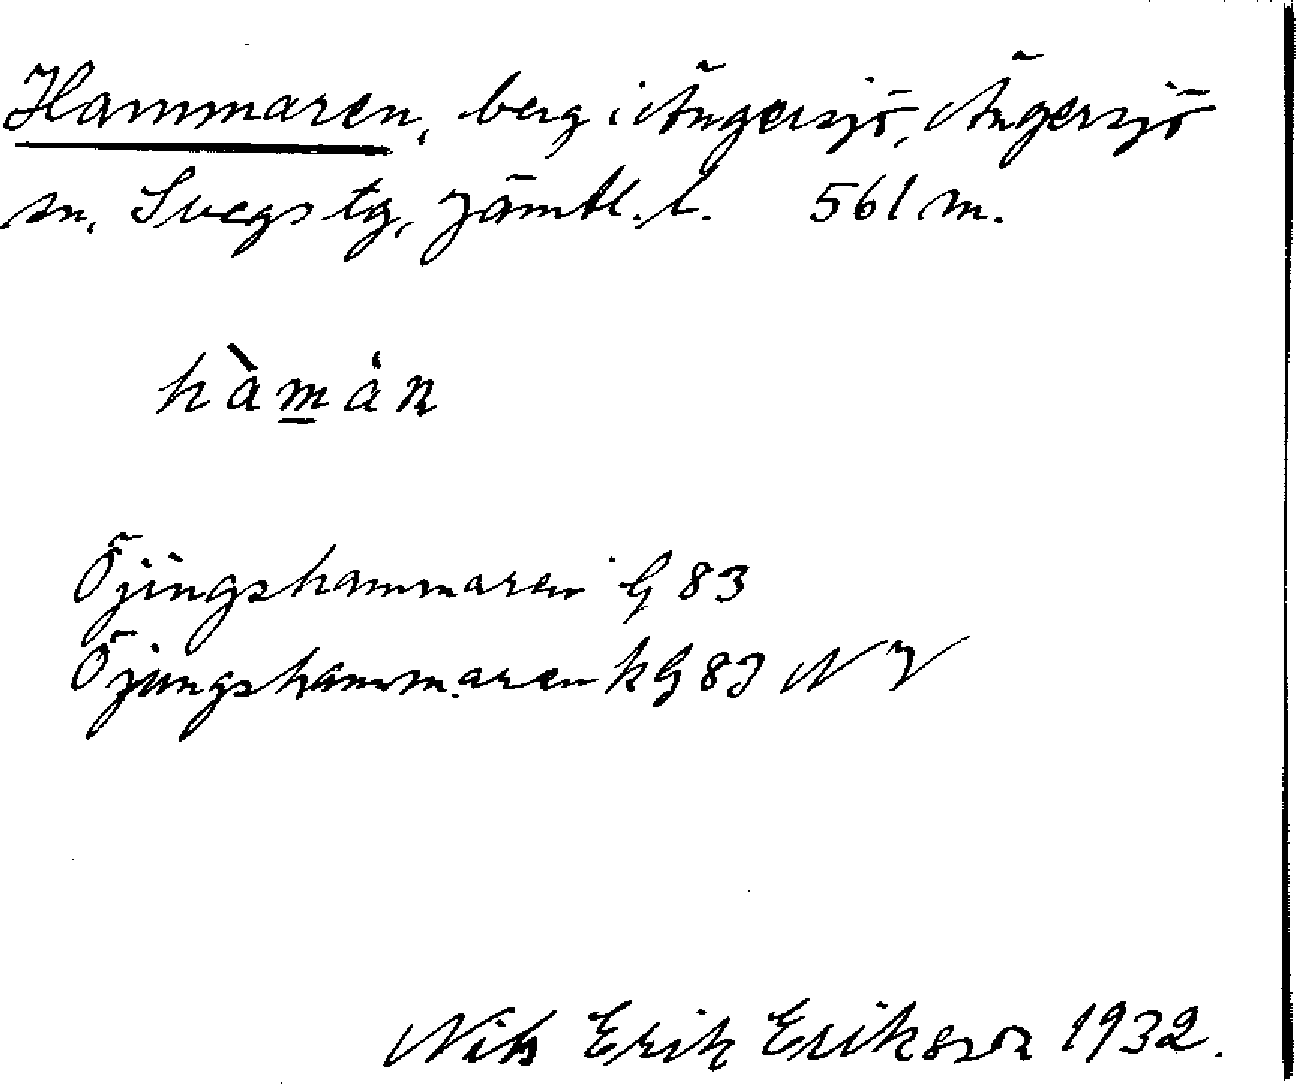 Hammaren, berg i Ängersjö, Ängersjö
sn, Svegs tg, Jämtl. l. 561 m.
hàmȧn
Öjingshammaren G 83
Öjungshammaren k G 83 NV
Nils Erik Eriksson 1932.